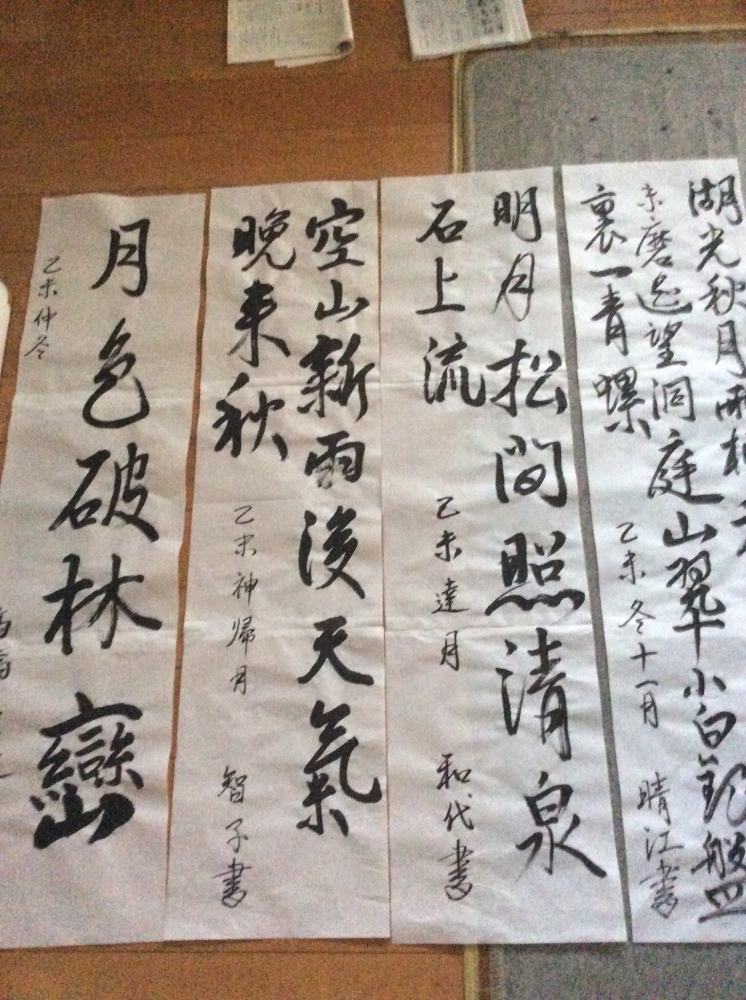 湖光秋月兩相
未磨遥望洞庭山翠小白銀盤
裏一青螺
乙未冬十一月 晴江書
明月松間照清泉
石上流
乙未達月 和代書
空山新雨後天氣
晩来秋
乙未神帰月 智子書
月色破林巒
乙未仲冬